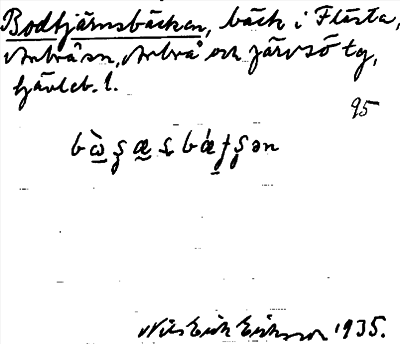 Bodtjärnsbäcken, bäck i Flästa,
Arbråsn, Arbrå och Järvsö tg,
Gävleb. l.
95
Nils Erik Eriksson 1935.